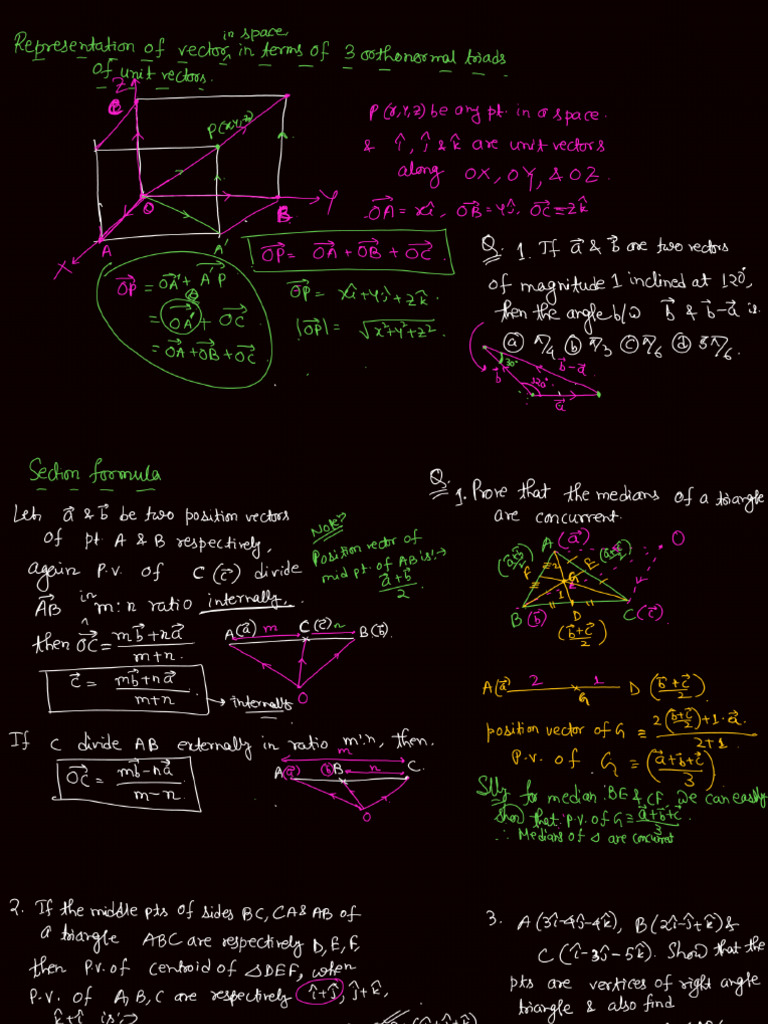 Representation of vector in space in terms of 3 orthonormal triads
of unit vectors.
Z
P(x,y,z)
O
Y
X
A
A'
B
P(x,y,z) be any pt. in a space.
& î, ĵ & k̂ are unit vectors
along OX, OY, & OZ.
OA⃗ = xî, OB⃗ = yĵ, OC⃗ = zk̂
OP⃗ = OA⃗ + OB⃗ + OC⃗.
OP⃗ = OA'⃗ + A'P⃗
= OA'⃗ + OC⃗
= OA⃗ + OB⃗ + OC⃗
OP⃗ = xî + yĵ + zk̂
|OP⃗| = √x²+y²+z²
Q. 1. If a⃗ & b⃗ are two vectors
of magnitude 1 inclined at 120°,
then the angle b/w b⃗ & b⃗-a⃗ is
(a) π/4 (b) π/3 (c) π/6 (d) 5π/6.
30°
b⃗-a⃗
b⃗
120°
a⃗
Section formula
Let a⃗ & b⃗ be two position vectors
of pt A & B respectively,
again P.V. of C(c⃗) divide
AB⃗ in m:n ratio internally.
then OC⃗ = mb⃗+na⃗ / m+n.
c⃗ = mb⃗+na⃗ / m+n
→ internally
Note:→
Position vector of
mid pt. of AB is:→
a⃗+b⃗ / 2.
A(a⃗) m C(c⃗) n B(b⃗).
O
If C divide AB externally in ratio m:n, then.
OC⃗ = mb⃗-na⃗ / m-n.
m
A(a⃗) (b⃗)B n C.
O
Q. 1. Prove that the medians of a triangle
are concurrent.
A(a⃗)
O
(a⃗+b⃗/2)
F
E
(a⃗+c⃗/2)
2
G
1
B(b⃗)
D
C(c⃗)
(b⃗+c⃗/2)
A(a⃗) 2 G 1 D(b⃗+c⃗/2)
position vector of G ≡ 2(b⃗+c⃗/2)+1·a⃗ / 2+1
P.V. of G ≡ (a⃗+b⃗+c⃗/3)
Slly for median BE & CF, we can easily
show that P.V. of G ≡ a⃗+b⃗+c⃗/3.
∴ Medians of Δ are concurrent
2. If the middle pts of sides BC, CA & AB of
a triangle ABC are respectively D, E, F.
then P.V. of centroid of ΔDEF, when
P.V. of A, B, C are respectively î+ĵ, ĵ+k̂,
k̂+î is:→
3. A(3î-4ĵ-4k̂), B(2î-ĵ+k̂) &
C(î-3ĵ-5k̂). Show that the
pts are vertices of right angle
triangle & also find